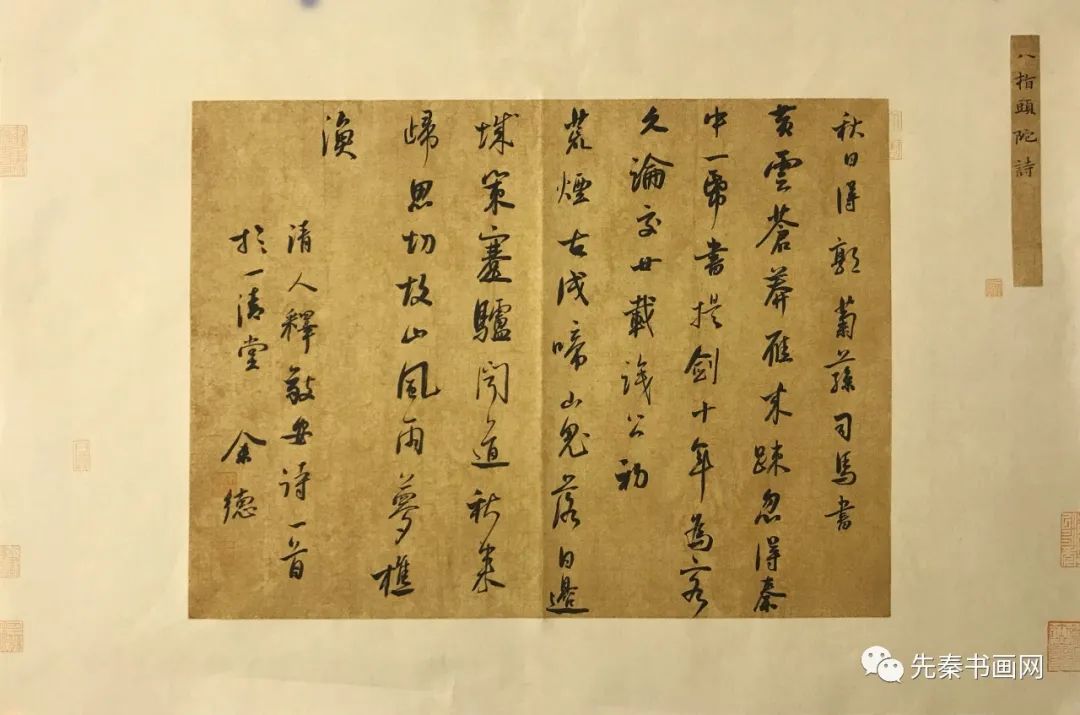 八指頭陀詩
秋日得郭菊蓀司馬書
黃雲蒼莽雁來疎忽得秦
中一帋書提劍十年為客
久論交廿載識公初
荒煙古戍啼山鬼落日邊
城策蹇驢聞道秋來
歸思切故山風雨夢樵
漁
清人釋敬安詩一首
於一清堂 余德
先秦书画网